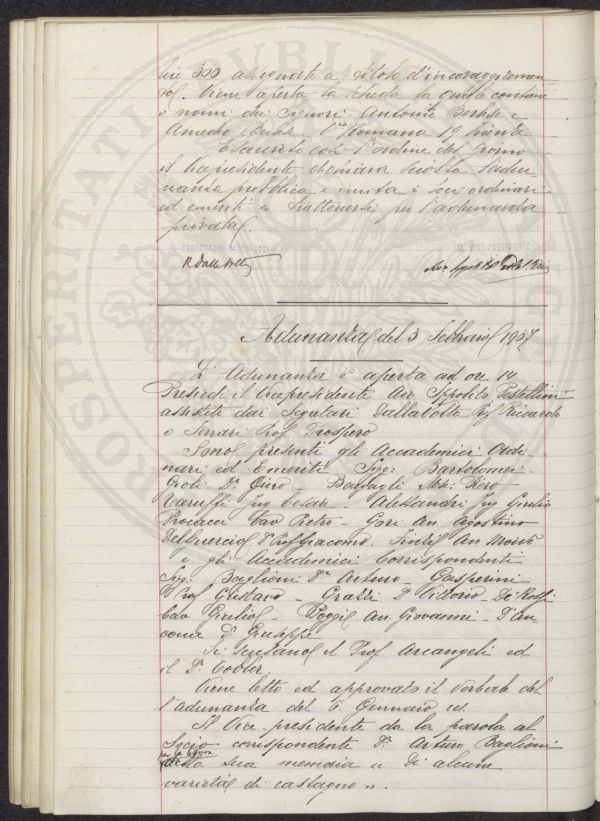 lire 300 assegnate a titolo d'incoraggiamen-
to. Viene aperta la scheda la quale contiene
i nomi dei Signori Antonio Berlese e
Amedeo Berlese. Via Romana 19 Firenze
Esaurito così l'ordine del giorno
il Vicepresidente dichiara sciolta l'adu-
nanza pubblica e invita i soci ordinari
ed emeriti a trattenersi per l'adunanza
privata.
IL SEGRETARIO DEGLI ATTI IL VICE-PRESIDENTE
R Dalla Volta
Adunanza del 3 Febbraio 1907
L'Adunanza è aperta ad ore 14
Presiede il Vicepresidente Avv. Ippolito Pestellini
assistito dai Segretari Dallavolta Prof. Riccardo
e Ferrari Prof. Prospero
Sono presenti gli Accademici Ordi-
nari ed Emeriti Sigg: Bartolomei-
Gioli Dr. Gino. Bargagli March: Piero
Taruffi Ing Cesare - Alessandri Ing Giulio
Procacci Cav Pietro - Gori Avv. Agostino
Delguercio Prof Giacomo.
e gli Accademici Corrispondenti
Sigg: Baglioni Dr. Arturo - Gasperini
Prof Gustavo - Grazzi D Vittorio De Rossi
Cav Giulio - Poggi Avv. Giovanni - D'An-
cona D. Giuseppe
Si scusano il Prof Arcangeli ed
il Dr. Tobler.
Viene letto ed approvato il Verbale del
l'adunanza del 6 Gennaio
Il Vice-presidente da la parola al
Socio corrispondente Dr. Arturo Baglioni
per la lettura
della sua memoria « di alcune
varietà di castagno ».